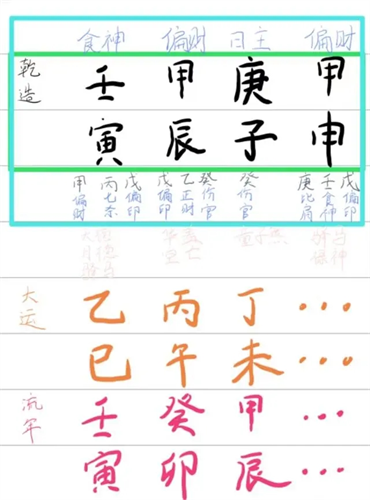 食神 偏财 日主 偏财
乾造 壬 甲 庚 甲
寅 辰 子 申
甲偏财 丙七杀 戊偏印 戊偏印 乙正财 癸伤官 癸伤官 庚比肩 壬食神 戊偏印
大运 乙 丙 丁 ...
巳 午 未 ...
流年 壬 癸 甲 ...
寅 卯 辰 ...